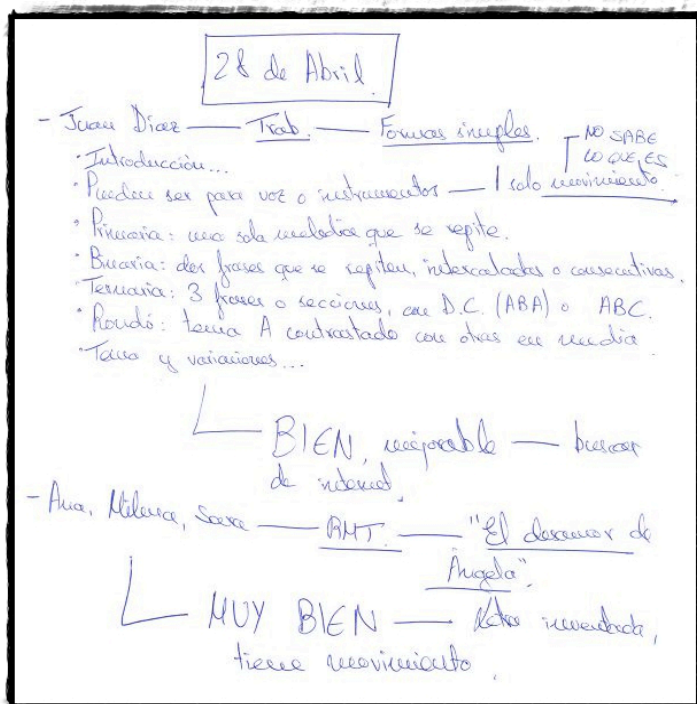 28 de Abril.
- Juan Díaz — Trab. — Formas simples.
NO SABE
LO QUE ES
· Introducción...
· Pueden ser para voz o instrumentos — 1 solo movimiento.
· Primaria: una sola melodía que se repite.
· Binaria: dos frases que se repiten, intercaladas o consecutivas.
· Ternaria: 3 frases o secciones, con D.C. (ABA) o ABC.
· Rondó: tema A contrastado con otras en
· Tema y variaciones...
BIEN, mejorable — buscar
de internet.
- Ana, Milena, Sara — RMT. — "El desamor de
Ángela".
MUY BIEN — letra inventada,
tiene movimiento.